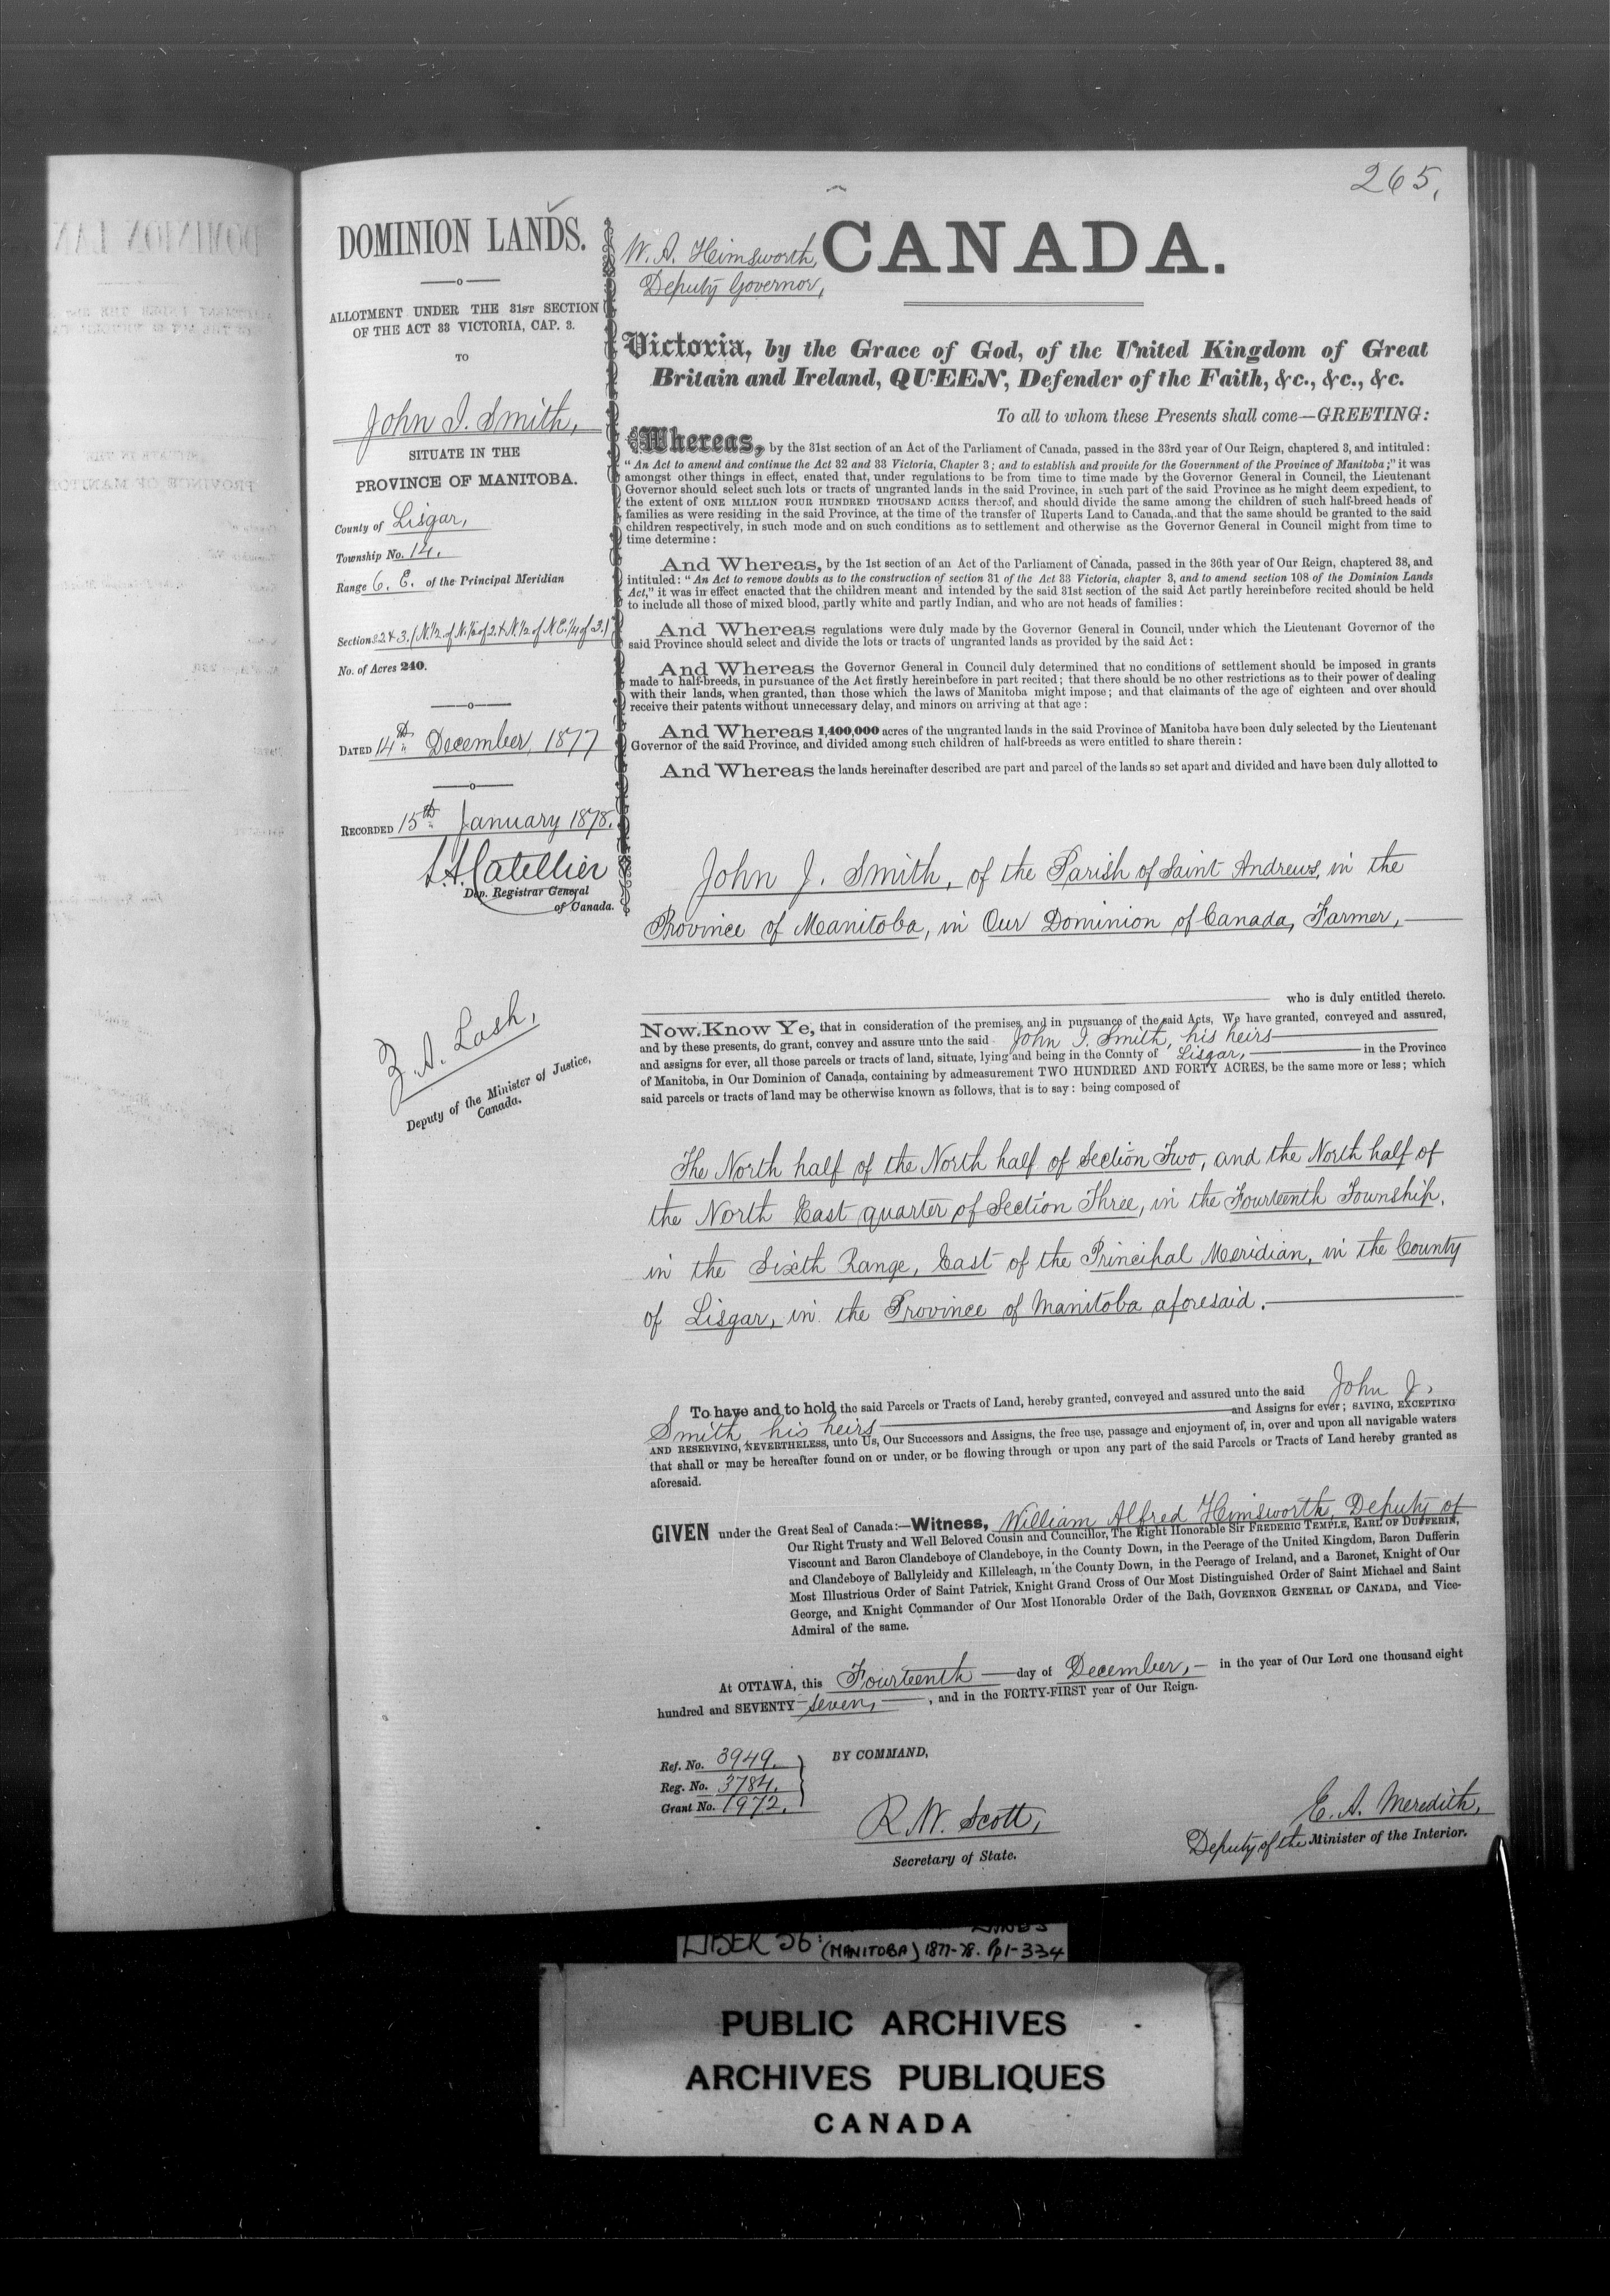 265.
DOMINION LANDS.
ALLOTMENT UNDER THE 31ST SECTION
OF THE ACT 33 VICTORIA, CAP. 3.
TO
John J. Smith,
SITUATE IN THE
PROVINCE OF MANITOBA.
County of Lisgar,
Township No. 14.
Range 6. E. of the Principal Meridian
Sections 2 & 3. (N.½ of N.½ of 2. & N.½ of N.E.¼ of 3.)
No. of Acres 240.
DATED 14th December, 1877
RECORDED 15th January 1878.
L. A. Catellier
Dep. Registrar General
of Canada.
Z. A. Lash,
Deputy of the Minister of Justice,
Canada.
W. A. Himsworth,
Deputy Governor,
CANADA.
Victoria, by the Grace of God, of the United Kingdom of Great
Britain and Ireland, QUEEN, Defender of the Faith, &c., &c., &c.
To all to whom these Presents shall come—GREETING:
Whereas, by the 31st section of an Act of the Parliament of Canada, passed in the 33rd year of Our Reign, chaptered 3, and intituled:
"An Act to amend and continue the Act 32 and 33 Victoria, Chapter 3; and to establish and provide for the Government of the Province of Manitoba;" it was
amongst other things in effect, enated that, under regulations to be from time to time made by the Governor General in Council, the Lieutenant
Governor should select such lots or tracts of ungranted lands in the said Province, in such part of the said Province as he might deem expedient, to
the extent of ONE MILLION FOUR HUNDRED THOUSAND ACRES thereof, and should divide the same among the children of such half-breed heads of
families as were residing in the said Province, at the time of the transfer of Ruperts Land to Canada, and that the same should be granted to the said
children respectively, in such mode and on such conditions as to settlement and otherwise as the Governor General in Council might from time to
time determine:
And Whereas, by the 1st section of an Act of the Parliament of Canada, passed in the 36th year of Our Reign, chaptered 38, and
intituled: "An Act to remove doubts as to the construction of section 31 of the Act 33 Victoria, chapter 3, and to amend section 108 of the Dominion Lands
Act," it was in effect enacted that the children meant and intended by the said 31st section of the said Act partly hereinbefore recited should be held
to include all those of mixed blood, partly white and partly Indian, and who are not heads of families:
And Whereas regulations were duly made by the Governor General in Council, under which the Lieutenant Governor of the
said Province should select and divide the lots or tracts of ungranted lands as provided by the said Act:
And Whereas the Governor General in Council duly determined that no conditions of settlement should be imposed in grants
made to half-breeds, in pursuance of the Act firstly hereinbefore in part recited; that there should be no other restrictions as to their power of dealing
with their lands, when granted, than those which the laws of Manitoba might impose; and that claimants of the age of eighteen and over should
receive their patents without unnecessary delay, and minors on arriving at that age:
And Whereas 1,400,000 acres of the ungranted lands in the said Province of Manitoba have been duly selected by the Lieutenant
Governor of the said Province, and divided among such children of half-breeds as were entitled to share therein:
And Whereas the lands hereinafter described are part and parcel of the lands so set apart and divided and have been duly allotted to
John J. Smith, of the Parish of Saint Andrews, in the
Province of Manitoba, in Our Dominion of Canada, Farmer,
who is duly entitled thereto.
Now Know Ye, that in consideration of the premises, and in pursuance of the said Acts, We have granted, conveyed and assured,
and by these presents, do grant, convey and assure unto the said John J. Smith, his heirs
and assigns for ever, all those parcels or tracts of land, situate, lying and being in the County of Lisgar, in the Province
of Manitoba, in Our Dominion of Canada, containing by admeasurement TWO HUNDRED AND FORTY ACRES, be the same more or less; which
said parcels or tracts of land may be otherwise known as follows, that is to say: being composed of
The North half of the North half of Section Two, and the North half of
the North East quarter of Section Three, in the Fourteenth Township,
in the Sixth Range, East of the Principal Meridian, in the County
of Lisgar, in the Province of Manitoba aforesaid.
To have and to hold the said Parcels or Tracts of Land, hereby granted, conveyed and assured unto the said John J.
Smith, his heirs and Assigns for ever; SAVING, EXCEPTING
AND RESERVING, NEVERTHELESS, unto Us, Our Successors and Assigns, the free use, passage and enjoyment of, in, over and upon all navigable waters
that shall or may be hereafter found on or under, or be flowing through or upon any part of the said Parcels or Tracts of Land hereby granted as
aforesaid.
GIVEN under the Great Seal of Canada:—Witness, William Alfred Himsworth, Deputy of
Our Right Trusty and Well Beloved Cousin and Councillor, The Right Honorable Sir FREDERIC TEMPLE, EARL OF DUFFERIN,
Viscount and Baron Clandeboye of Clandeboye, in the County Down, in the Peerage of the United Kingdom, Baron Dufferin
and Clandeboye of Ballyleidy and Killeleagh, in the County Down, in the Peerage of Ireland, and a Baronet, Knight of Our
Most Illustrious Order of Saint Patrick, Knight Grand Cross of Our Most Distinguished Order of Saint Michael and Saint
George, and Knight Commander of Our Most Honorable Order of the Bath, GOVERNOR GENERAL OF CANADA, and Vice-
Admiral of the same.
At OTTAWA, this Fourteenth day of December, in the year of Our Lord one thousand eight
hundred and SEVENTY-Seven, , and in the FORTY-FIRST year of Our Reign.
Ref. No. 3949.
Reg. No. 3784.
Grant No. 1972.
BY COMMAND,
R. W. Scott,
Secretary of State.
E. A. Meredith,
Deputy of the Minister of the Interior.
LIBER 56: (MANITOBA) 1877-78. Pp 1-334
PUBLIC ARCHIVES
ARCHIVES PUBLIQUES
CANADA